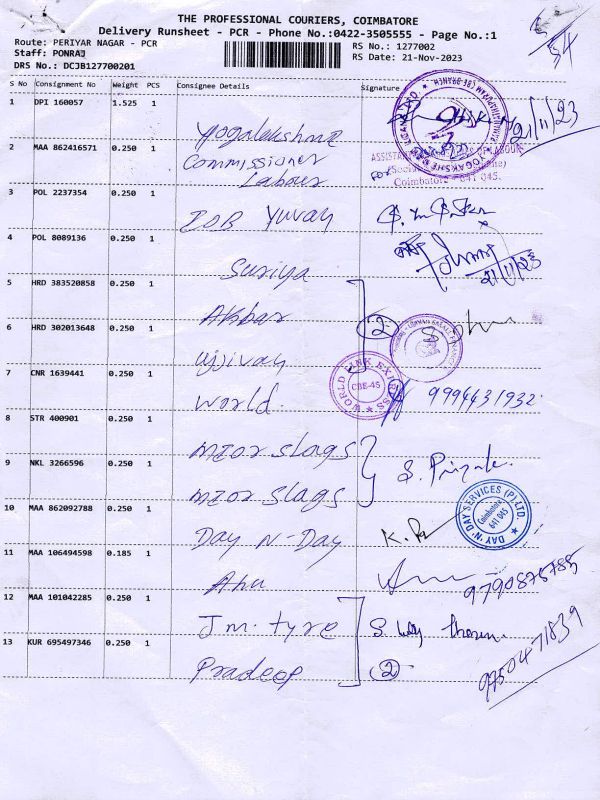 THE PROFESSIONAL COURIERS, COIMBATORE
Delivery Runsheet - PCR - Phone No.:0422-3505555 - Page No.:1
Route: PERIYAR NAGAR - PCR
RS No.: 1277002
Staff: PONRAJ
RS Date: 21-Nov-2023
DRS No.: DCJB127700201
54
S No Consignment No Weight PCS Consignee Details Signature
1 DPI 160057 1.525 1 Yogalakshmi
21/11/23
2 MAA 862416571 0.250 1 Commissioner Labour
for
Coimbatore - 641 045.
3 POL 2237354 0.250 1 IOB Yuvay
4 POL 8089136 0.250 1 Suriya
21/11/23
5 HRD 383520858 0.250 1 Akbar
6 HRD 302013648 0.250 1 Ujjivay
2
7 CNR 1639441 0.250 1 World
WORLD LINK EXPRESS
CBE-45
9994431932
8 STR 400901 0.250 1 mior slags
9 NKL 3266596 0.250 1 mior slags
10 MAA 862092788 0.250 1 Day N-Day
DAY N' DAY SERVICES (P) LTD.
Coimbatore
641 045
11 MAA 106494598 0.185 1 Anu
9790878785
12 MAA 101042285 0.250 1 Jm. tyre
13 KUR 695497346 0.250 1 Pradeep
2
9750471839